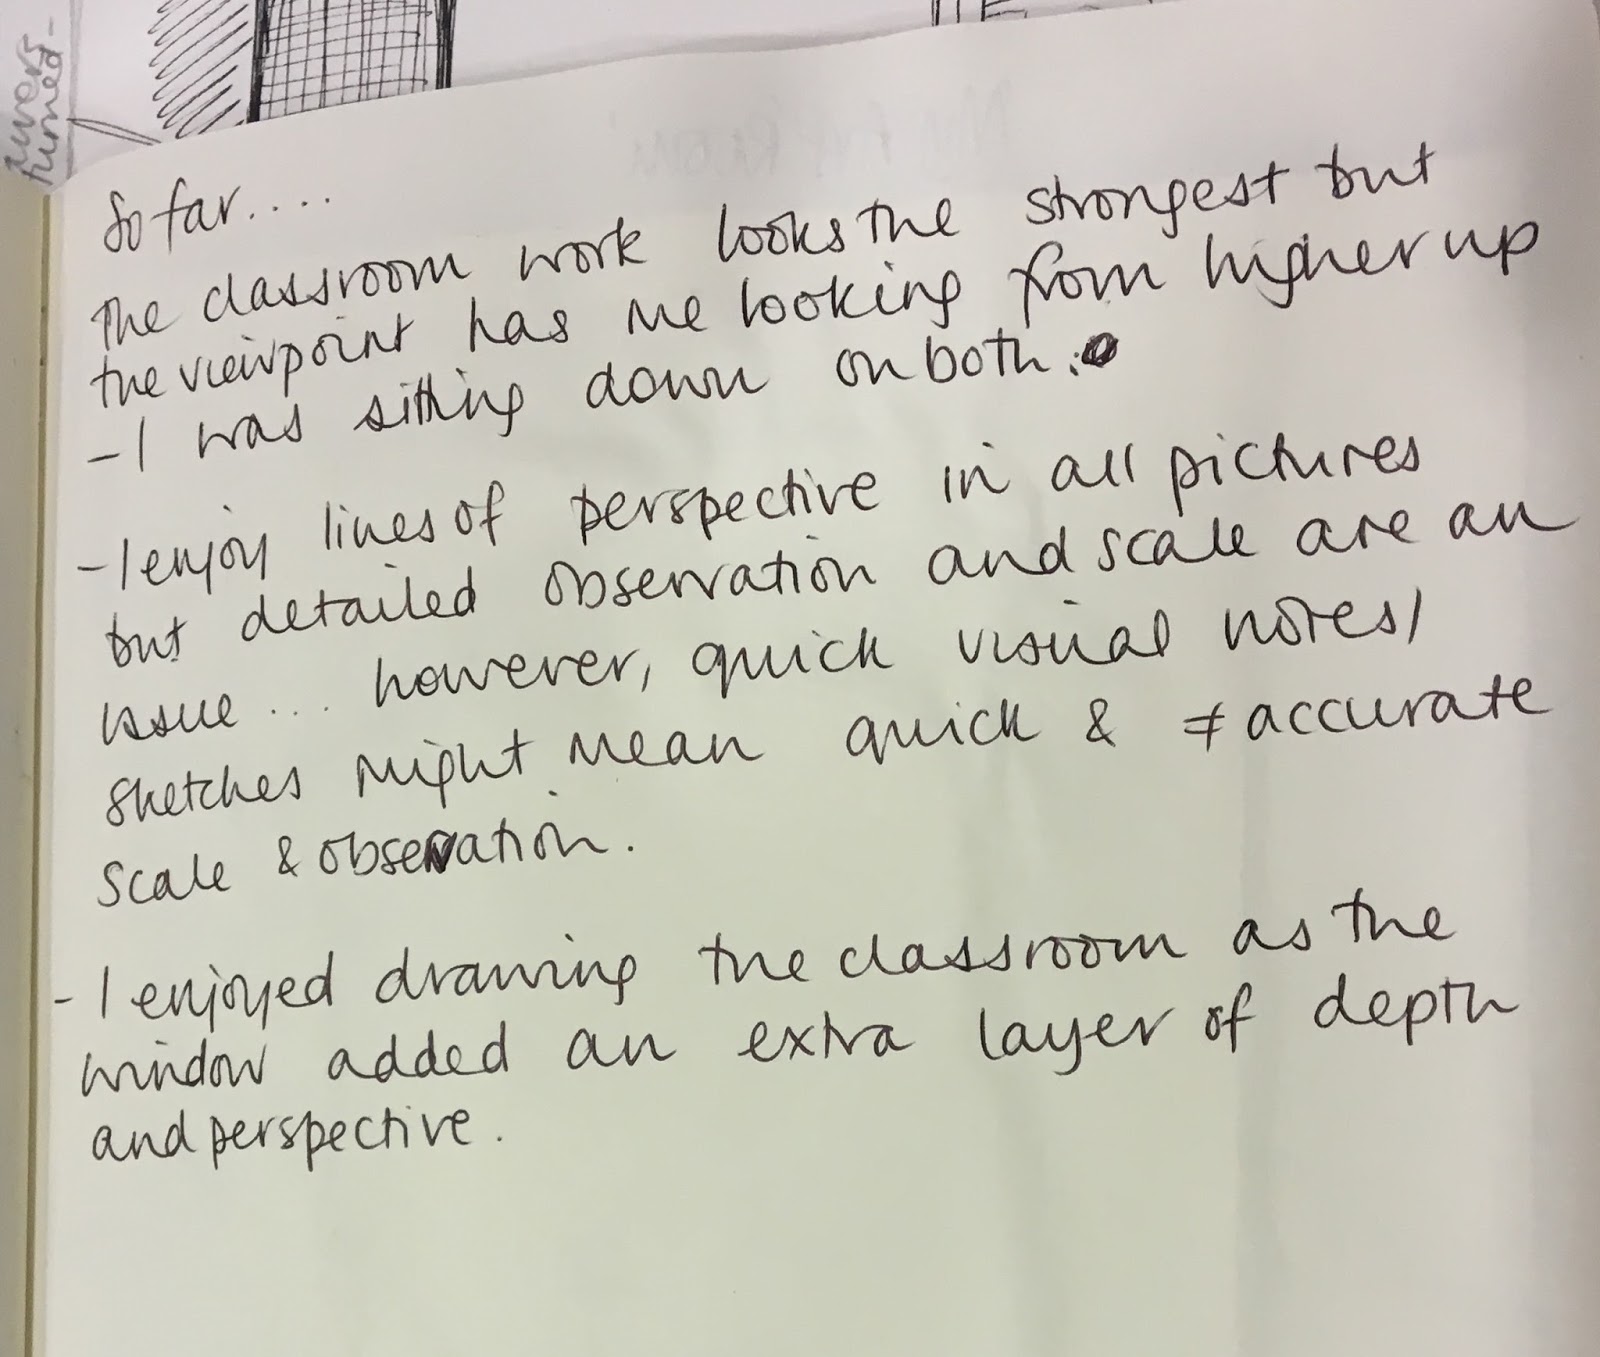 So far....
The classroom work looks the strongest but
the viewpoint has me looking from higher up
- I was sitting down on both.
- I enjoy lines of perspective in all pictures
but detailed observation and scale are an
issue... however, quick visual notes/
sketches might mean quick & ≠ accurate
scale & observation.
- I enjoyed drawing the classroom as the
window added an extra layer of depth
and perspective.
turned -